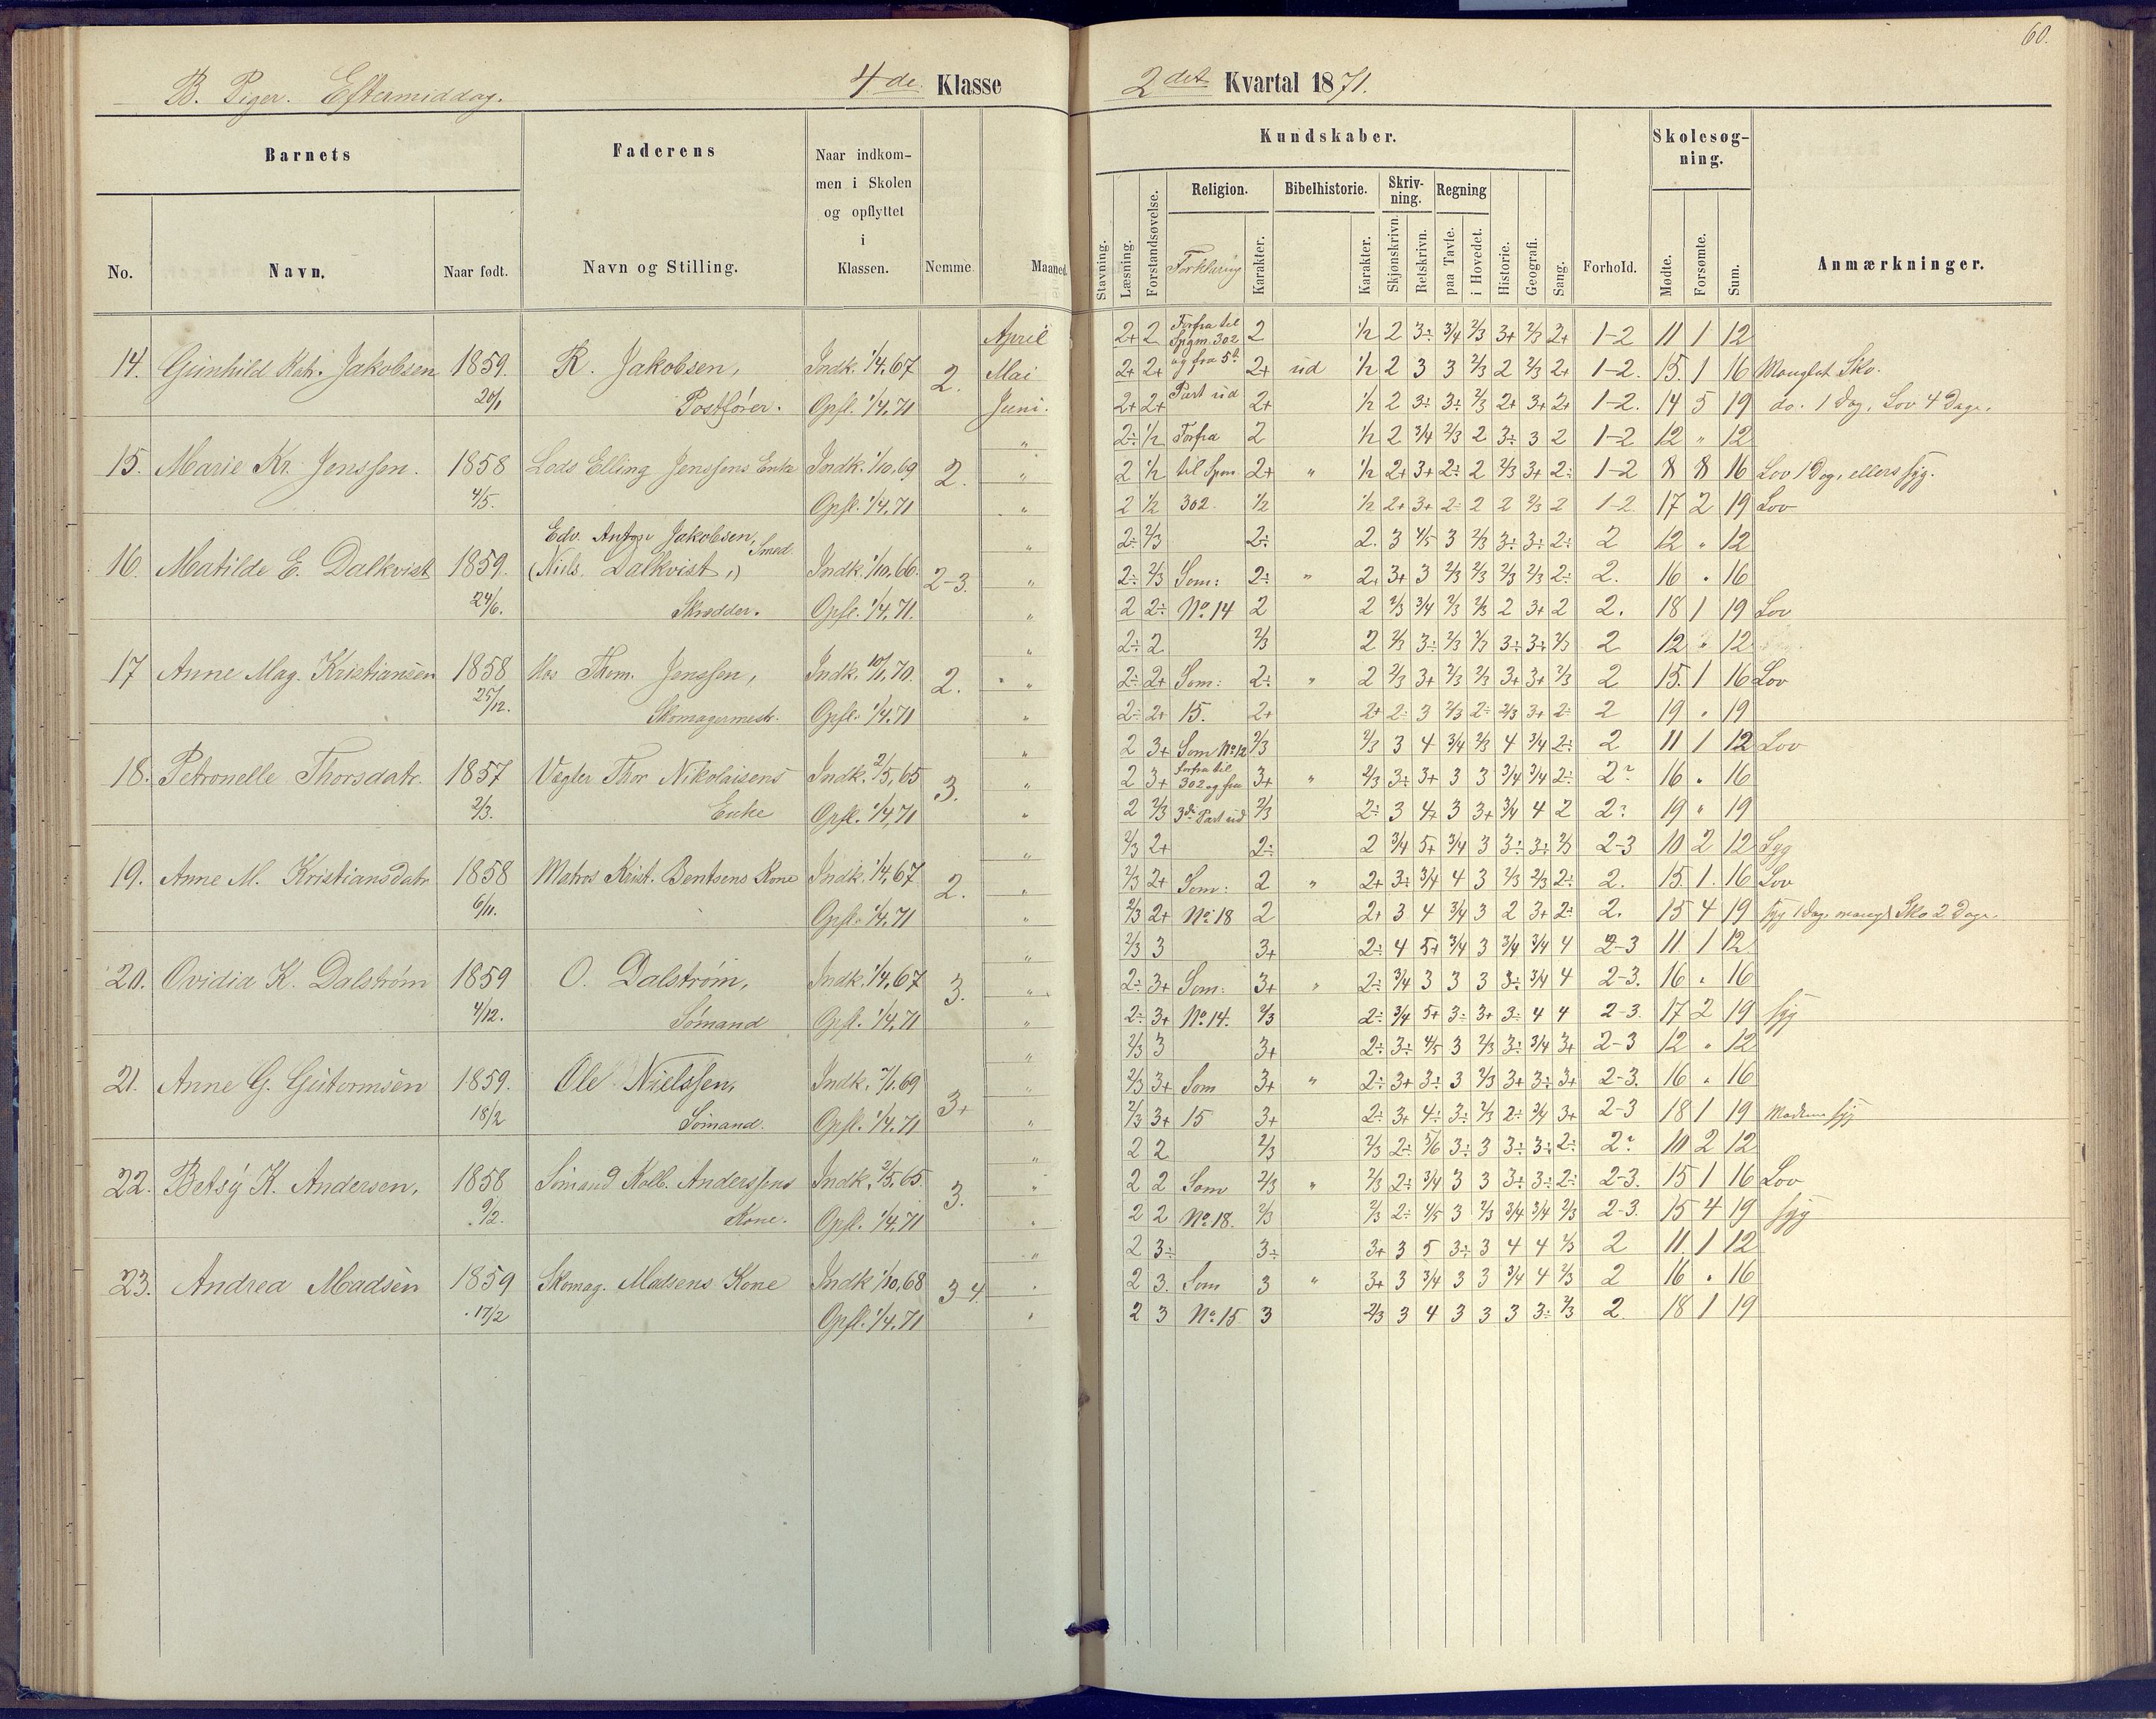 60.
B. Piger. Eftermiddag. 4de Klasse 2det Kvartal 1871.
Barnets Faderens Naar indkommen i Skolen og opflyttet i Klassen. Nemme. Maaned.
No. Navn. Naar født. Navn og Stilling.
Kundskaber. Skolesøgning.
Religion. Bibelhistorie. Skrivning. Regning
Stavning. Læsning. Forstandsøvelse. Forklaring Karakter. Karakter. Skjønskrivn. Retskrivn. paa Tavle. i Hovedet. Historie. Geografi. Sang. Forhold. Mødte. Forsømte. Sum. Anmærkninger.
April 2+ 2 Forfra til Spgm. 302 2 1/2 2 3÷ 3/4 2/3 3+ 2/3 2+ 1-2 11 1 12
14. Gunhild Kath. Jakobsen 1859. R. Jakobsen, Indk. 1/4,67 2. Mai 2+ 2+ og fra 5te 2+ ud 1/2 2 3 3 2/3 2 2/3 2+ 1-2. 15. 1 16 Manglet Sko.
20/1 Postfører. Opfl. 1/4,71 Juni. 2+ 2+ Part ud 2+ 1/2 2 3÷ 3÷ 2/3 2+ 3+ 2+ 1-2. 14 5 19 do. 1 Dag, Lov 4 Dage.
" 2÷ 1/2 Forfra 2 1/2 2 3/4 2/3 2 3÷ 3 2 1-2 12 " 12
15. Marie Kr. Jenssen. 1858 Lods Elling Jenssens Enke Indk. 1/10,69 2. " 2 1/2 til Spm 2+ " 1/2 2+ 3+ 2÷ 2 2/3 3+ 2÷ 1-2 8 8 16 Lov 1 Dag, ellers syg.
4/5. Opfl. 1/4,71 " 2 1/2 302 1/2 1/2 2+ 3+ 2÷ 2 2 2/3 2 1-2 17 2 19 Lov
Edv. Anton Jakobsen, Smed " 2÷ 2/3 2÷ 2. 3 4/5 3 2/3 3÷ 3÷ 2÷ 2 12 " 12
16. Matilde E. Dalkvist 1859. (Niels Dalkvist,) Indk. 1/10,66. 2-3. " 2÷ 2/3 Som: 2÷ " 2+ 3+ 3 2/3 2/3 2/3 2/3 2÷ 2. 16 " 16
24/6. Skrædder. Opfl. 1/4,71. " 2 2÷ No. 14 2 2 2/3 3/4 2/3 2/3 2 3+ 2 2. 18 1 19 Lov
" 2÷ 2 2/3 2 2/3 3÷ 2/3 2/3 3÷ 3÷ 2/3 2 12 " 12
17 Anne Mag. Kristiansen 1858 Hos Thom. Jenssen, Indk. 10/1,70. 2. " 2÷ 2+ Som: 2÷ " 2 2/3 3+ 2/3 2/3 3+ 3+ 2/3 2 15. 1 16 Lov
25/12. Skomagermestr. Opfl. 1/4,71 " 2÷ 2+ 15. 2+ 2+ 2÷ 3 2/3 2÷ 2/3 3+ 2÷ 2 19 " 19
" 2 3+ Som No. 12 2/3 2/3 3 4 3/4 2/3 4 3/4 2÷ 2 11 1 12 Lov
18. Petronelle Thorsdatr. 1857 Vægter Thor Nikolaisens Indk. 2/5,65 3. " 2 3+ forfra til 302 og fra 3+ " 2/3 3÷ 3+ 3 3 3/4 3/4 2÷ 2? 16 " 16
2/3. Enke Opfl. 1/4,71 " 2 2/3 3die Part ud 2/3 2÷ 3 4+ 3 3+ 3/4 4 2 2? 19 " 19
" 2/3 2+ 2÷ 2 3/4 5+ 3/4 3 3÷ 3÷ 2/3 2-3 10 2 12 Syg
19. Anne M. Kristiansdatr 1858 Matros Krist. Bentsens Kone Indk. 1/4,67 2. " 2/3 2+ Som: 2 " 2+ 3÷ 3/4 4 3 2/3 2/3 2÷ 2. 15. 1. 16 Lov
6/11. Opfl. 1/4,71 " 2/3 2+ No. 18 2 2+ 3 4 3/4 3 2 3+ 2÷ 2. 15 4 19 syg 1 Dag, mangl. Sko 2 Dage.
" 2/3 3 3+ 2÷ 4 5+ 3/4 3 3/4 3/4 4 2-3 11 1 12
20. Ovidia K. Dalstrøm 1859 O. Dalstrøm, Indk. 1/4,67 3. " 2÷ 3+ Som: 3+ " 2÷ 3/4 3 3 3 3÷ 3/4 4 2-3. 16 " 16
4/12. Sømand Opfl. 1/4,71 " 2÷ 3+ No. 14. 2/3 2÷ 3/4 5+ 3÷ 3+ 3÷ 4 4 2-3. 17 2 19 syg
" 2/3 3 3+ 2÷ 3÷ 4/5 3 2/3 3÷ 3/4 3+ 2-3 12 " 12
21. Anne G. Guttormsen 1859. Ole Nielssen, Indk. 7/1,69 3+ " 2/3 3+ Som 3+ " 2÷ 3+ 3÷ 3 2/3 3+ 3÷ 3+ 2-3. 16 " 16
18/2 Sømand. Opfl. 1/4,71 " 2/3 3+ 15 3+ 2÷ 3+ 4÷ 3÷ 2/3 2÷ 3/4 3+ 2-3 18 1 19 Moderen syg
" 2 2 2/3 2/3 2÷ 5/6 3÷ 3 3÷ 3÷ 2÷ 2? 10 2 12
22. Betsy K. Andersen, 1858 Sømand Kolb. Anderssens Indk. 2/5,65. 3. " 2 2 Som 2/3 " 2/3 2÷ 3/4 3 3 3÷ 3÷ 2÷ 2-3. 15 1 16 Lov
9/12. Kone. Opfl. 1/4,71 " 2 2 No. 18. 2/3 2/3 2÷ 4/5 3 2/3 3/4 3/4 2/3 2-3. 15 4 19 syg
" 2 3÷ 3÷ 3+ 3 5 3÷ 3 4 4 2/3 2 11 1 12
23. Andrea Madsen 1859 Skomag. Madsens Kone Indk 1/10,68 3-4. " 2 3. Som 3 " 3+ 3 3/4 3 3 3/4 4 2/3 2 16 " 16
17/2 Opfl. 1/4,71 " 2 3 No. 15 3 2/3 3 4 3 3 3 3÷ 2/3 2. 18 1 19